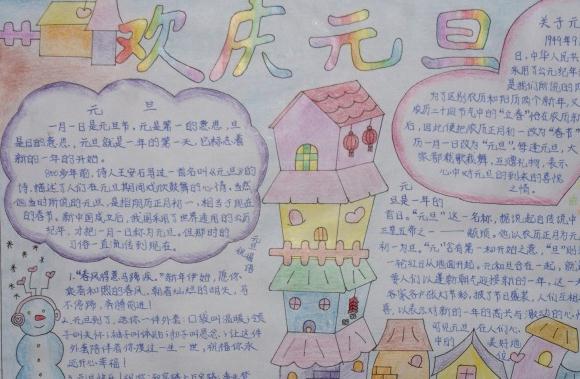 欢庆元旦
元 旦
一月一日是元旦节,元是第一的意思,旦
是日的意思,元旦就是一年的第一天,它标志着
新的一年的开始。
900多年前,诗人王安石写过一首名叫《元旦》的
诗,描述了人们在元旦期间欢欣鼓舞的心情,当然
他当时所说的元旦,是指阴历正月初一,相当于现在
的春节。新中国成立后,我国采用了世界通用的公历
纪年,才把一月一日称为元旦。但那时的
习俗一直流传到现在。
元旦祝福语
1."春风得意马蹄疾。"新年伊始,愿你
乘着和煦的春风,朝着灿烂的明天,马
不停蹄,奔腾前进!
2.元旦到了,送你一件外套:口袋叫温暖;领
子叫关怀;袖子叫体贴;扣子叫思念;让这件
外套陪伴着你度过一生一世,祝福你永
远开心幸福!
关于元
1949年9
日,中华人民共
采用了公元纪年
是我们所说的阳
为了区别农历和阳历两个新年,又
农历二十四节气中的"立春"恰在农历新
后,因此便把农历正月初一改为"春节"
历一月一日改为"元旦"。每逢元旦,大
家都载歌载舞,互赠礼物,表示
心中对元旦的到来的喜悦
之情。
元
旦是一年的
首日。"元旦"这一名称,据说起自传说中
三皇五帝之一——颛顼,他以农历正月为元
初一为旦。"元"名有第一和开始之意,"旦"则
一轮红日从地面升起。元和旦合在一起,就
要人们以蓬勃朝气迎接新的一年,这一天
各家各户张灯节彩,披了节日盛装,人们互相
善,以表达对新的一年的高兴与激动的心
可见元旦,在人们心
中的
美好地
位